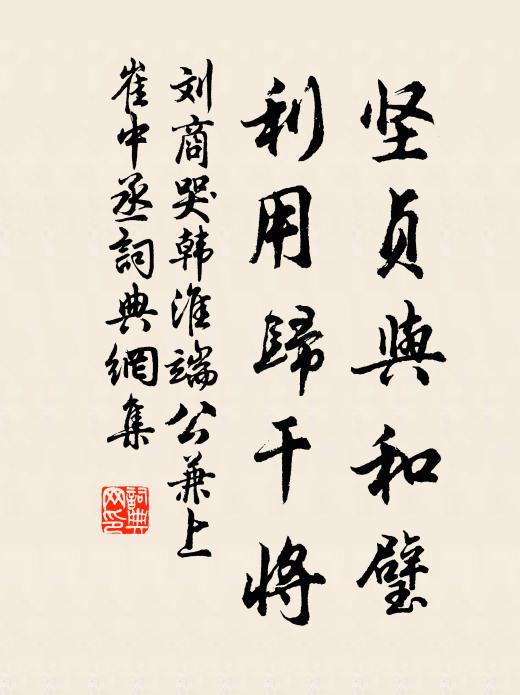 坚贞與和璧
利用歸干将
刘商哭韩淮端公兼上
崔中丞詞典網集
詞典网印